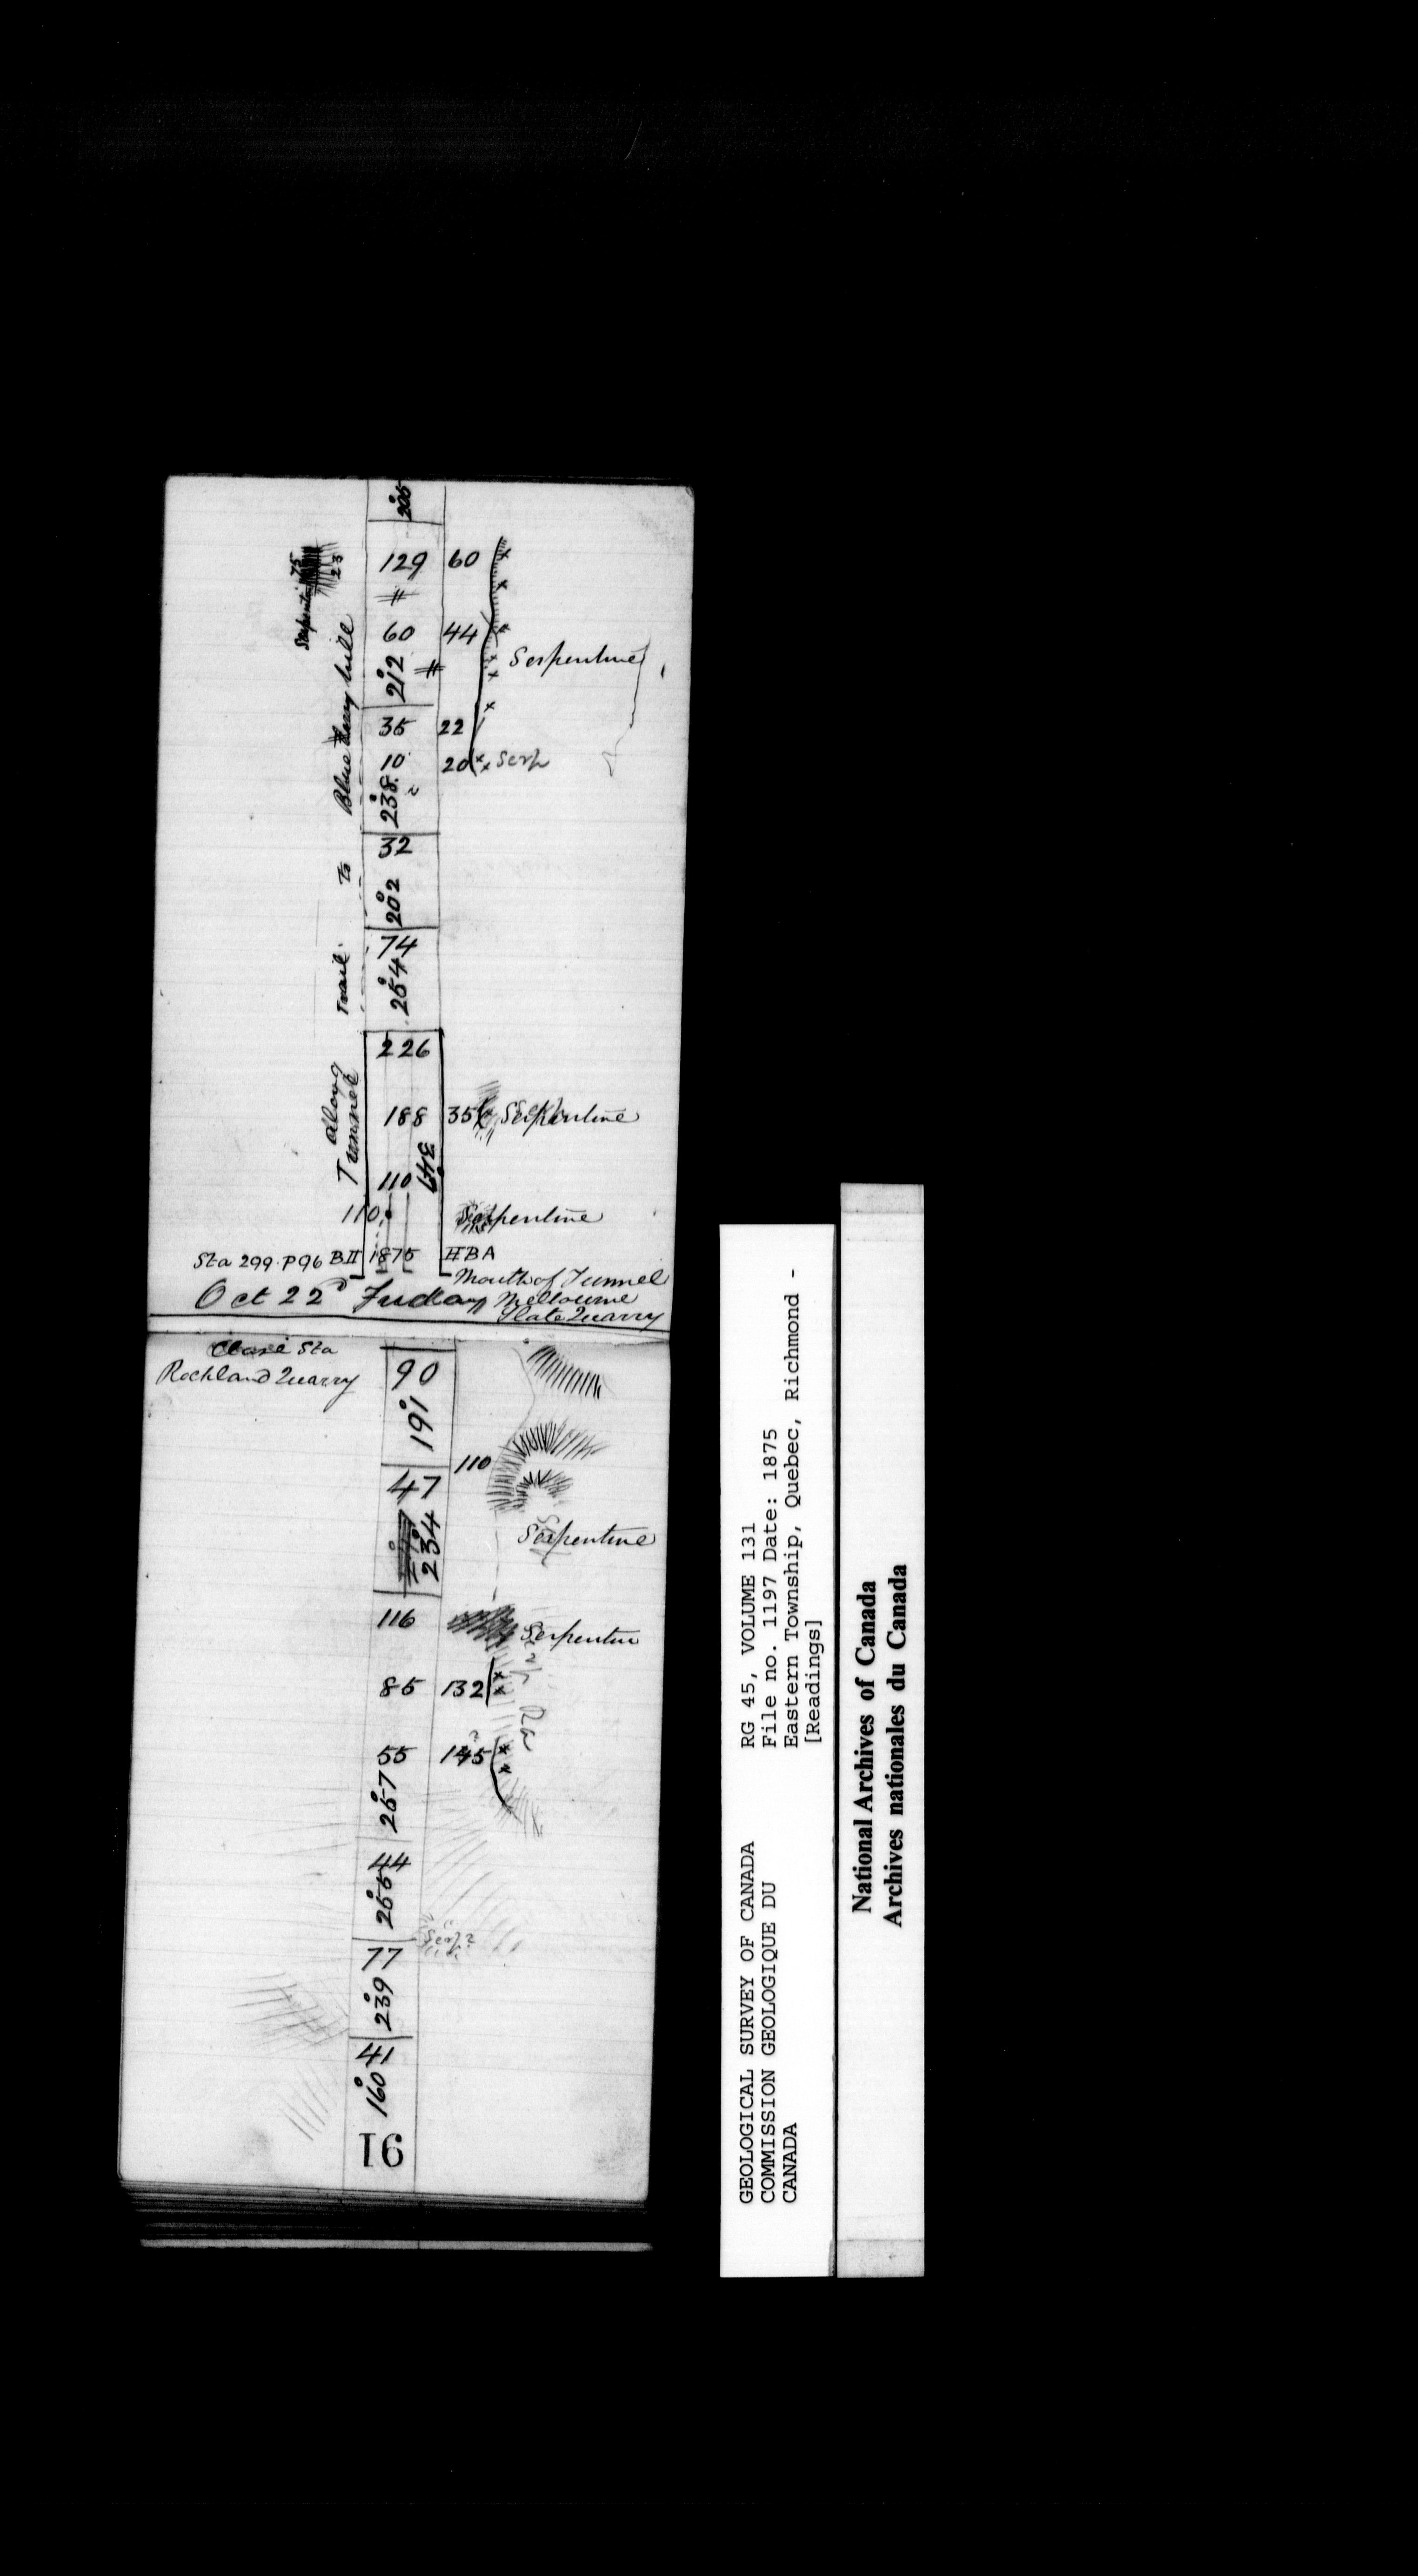 205°
129 60
60 44
Serpentine
212°
35 22
10 20 Serp
238°
32
202°
74
254°
226
188 35 Serpentine
110
110 Serpentine
Serpentine 75
23
Along Trail to Blue Berry hill
Tunnel
Sta 299 P96 BII 1875 II B A
Mouth of Tunnel
Oct 22d Friday Melbourne
Slate Quarry
Close Sta
Rockland Quarry
90
191°
110
47
234°
Serpentine
116 Serpentin
85 132
55 145
257°
44
255°
Serp?
77
239°
41
160°
91
GEOLOGICAL SURVEY OF CANADA
COMMISSION GEOLOGIQUE DU
CANADA
RG 45, VOLUME 131
File no. 1197 Date: 1875
Eastern Township, Quebec, Richmond -
[Readings]
National Archives of Canada
Archives nationales du Canada